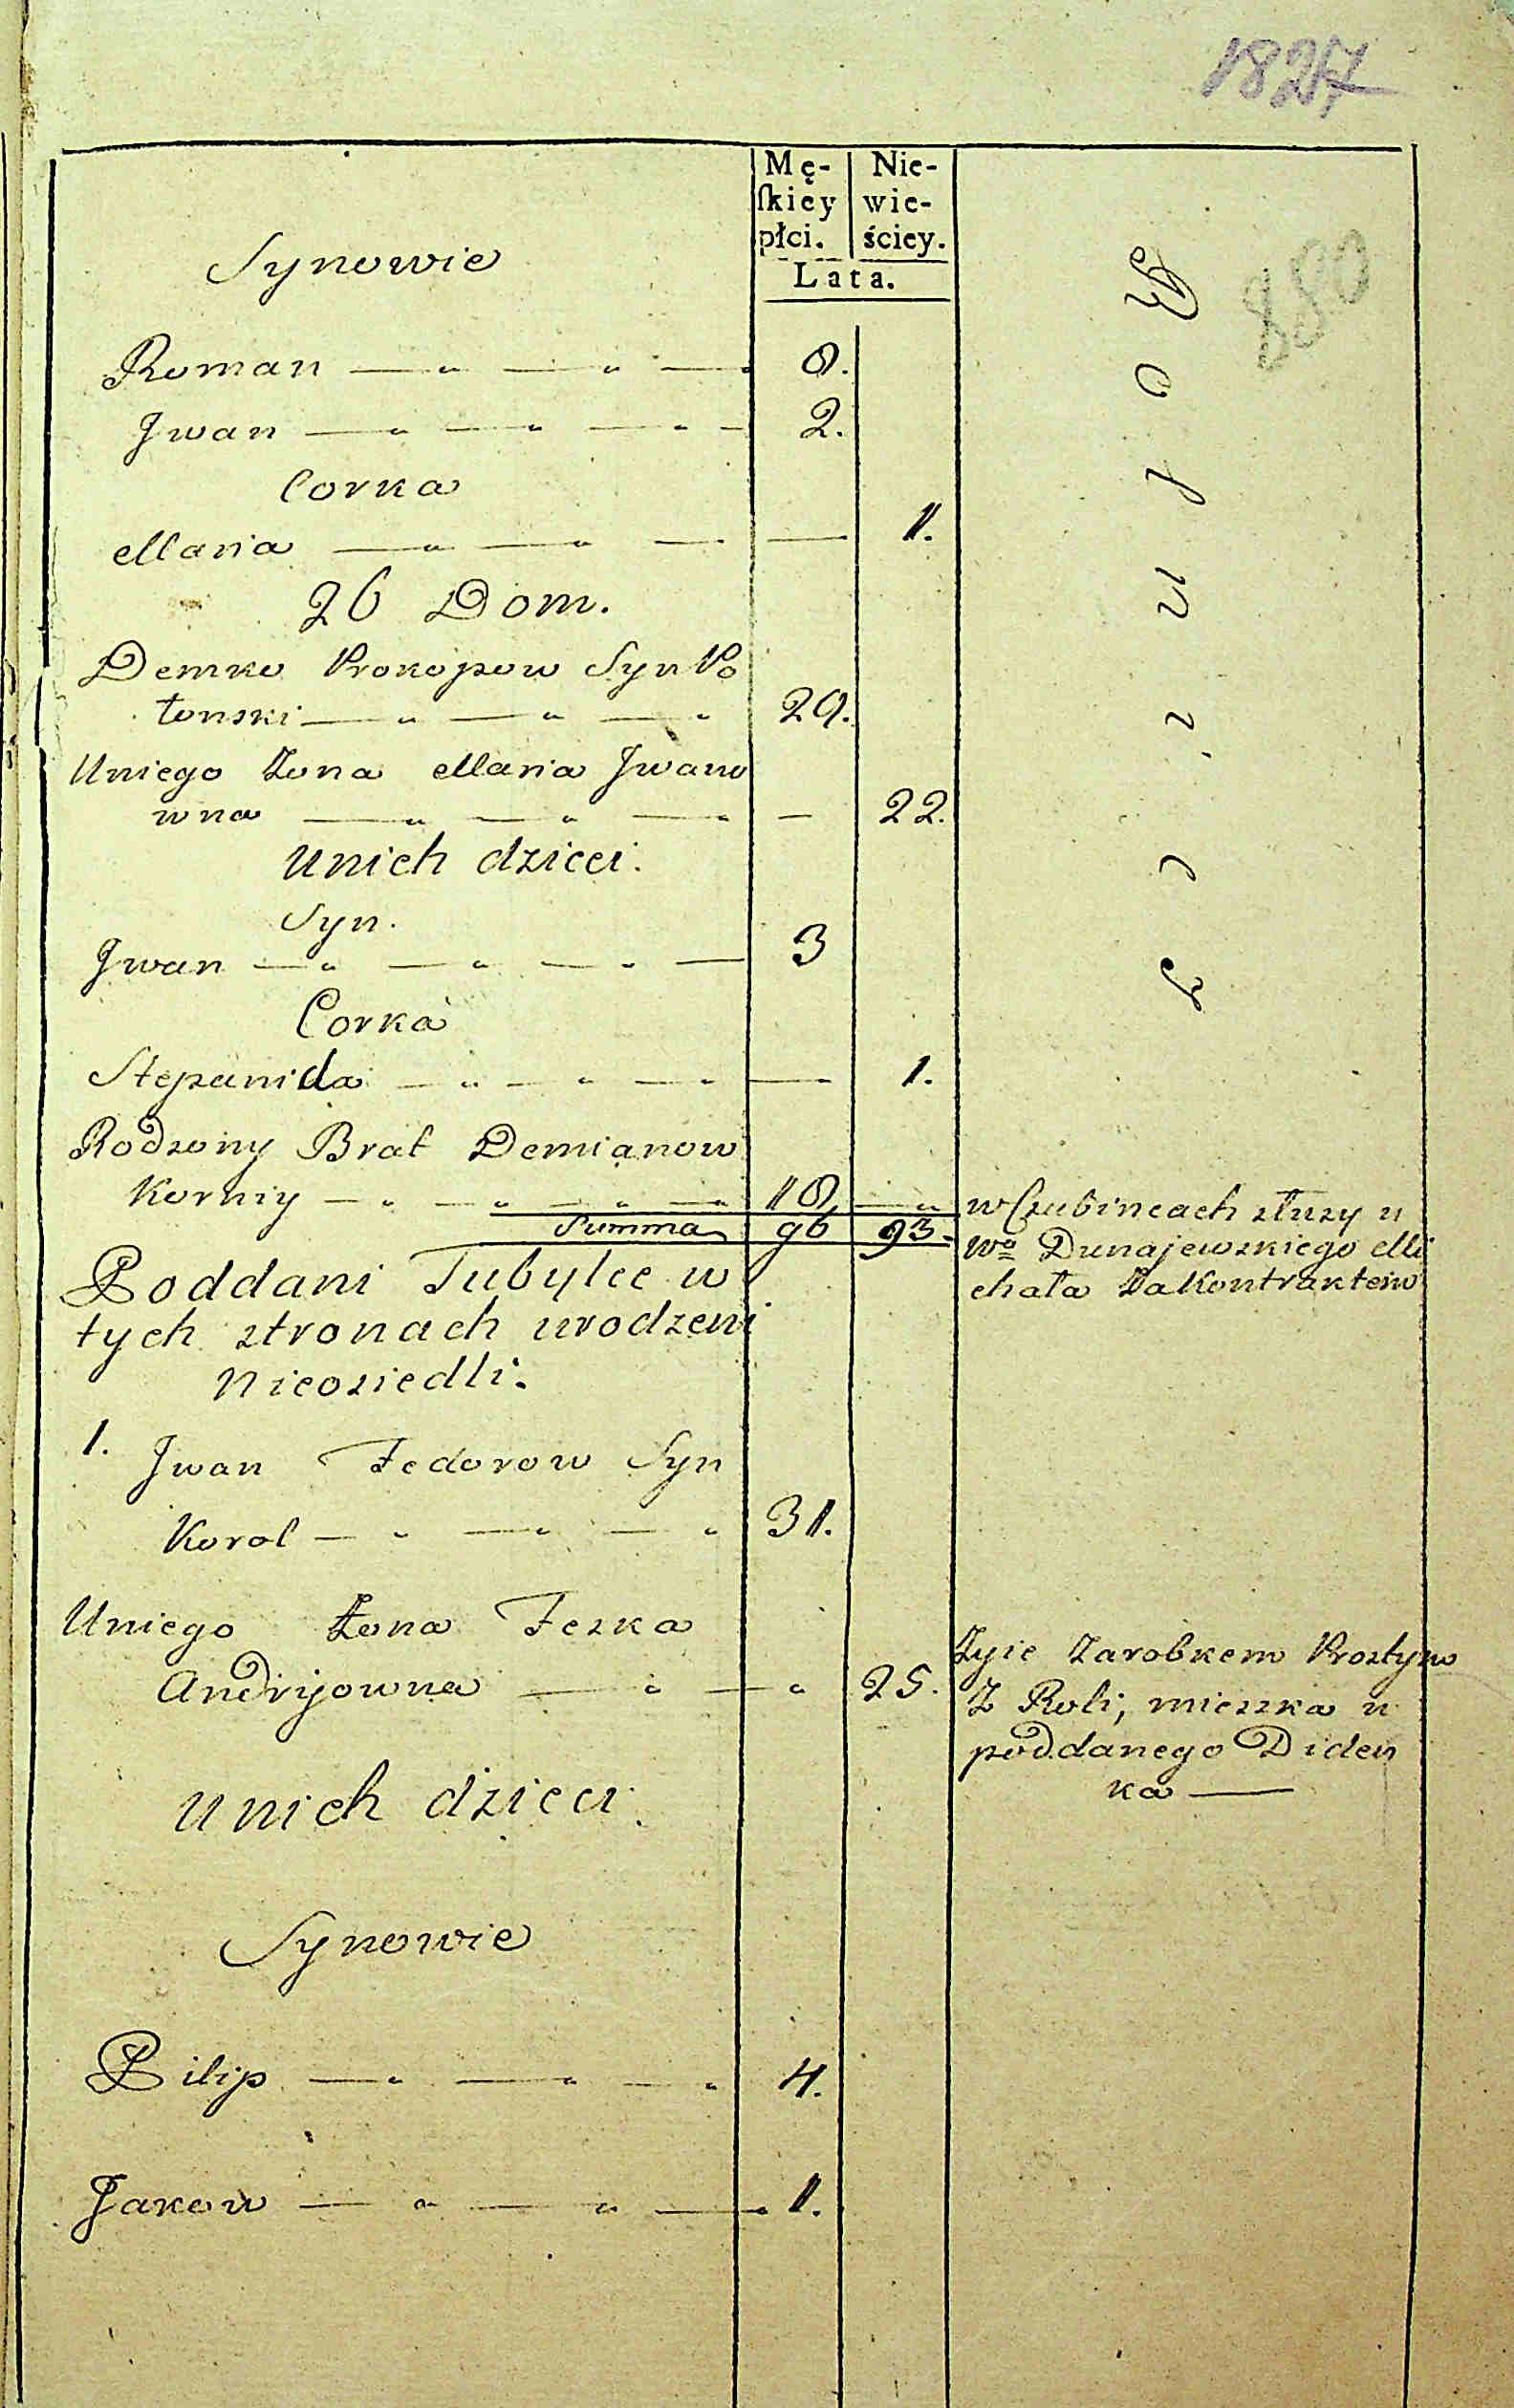 1827
880
Mę-
ſkiey
płci.
Nie-
wie-
ściey.
Lata.
Synowie
Roman — " — " — 8.
Jwan — " — " — " — 2.
Corka
Maria — " — " — — 1.
26 Dom.
Demko Prokopow Syn Po
łonski — " — " — " 29.
Uniego Zona Maria Jwano
wna — " — " — " — 22.
Unich dzieci.
Syn.
Jwan — " — " — " — 3
Corka
Stepanida — " — " — " — 1.
Rodzony Brat Demianow
Korniy — " — " — " — " 18. — "
Summa 96 93.
w Czubincach służy u
Wo Dunajewskiego Mi
chała Za Kontraktem
Poddani Tubylce w
tych stronach urodzeni
Nieosiedli.
1. Jwan Fedorow Syn
Korol — " — " — " 31.
Uniego Zona Feska
Andryjowna — " — " 25.
Zyie Zarobkem Prostym
Z Roli, mieszka u
poddanego Diden
ka —
Unich dzieci.
Synowie
Pilip — " — " — " 4.
Jakow — " — " — 1.